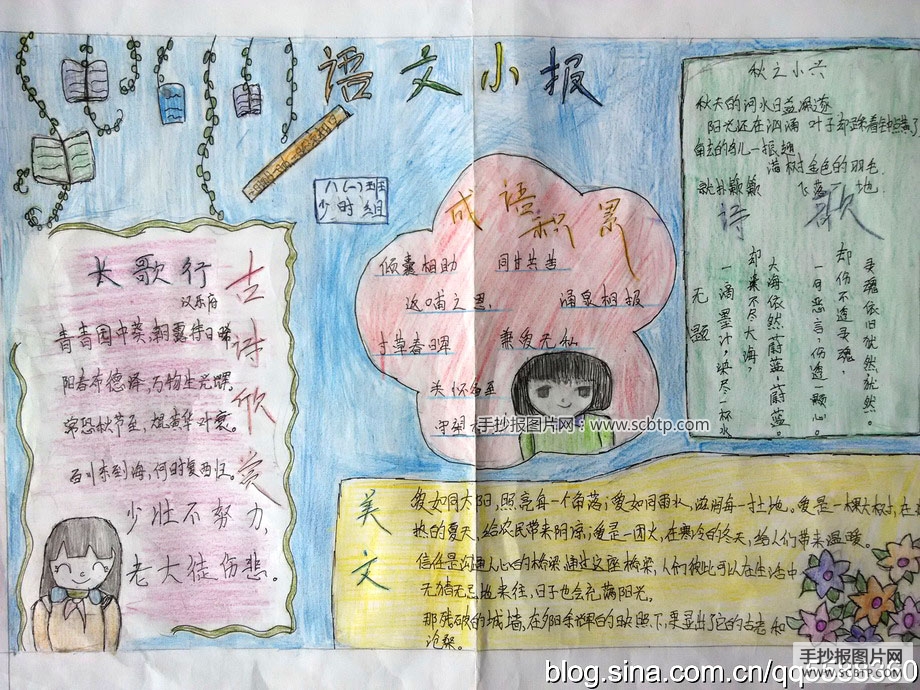 语文小报
八(一)班
少时组
古诗欣赏
长歌行
汉乐府
青青园中葵,朝露待日晞
阳春布德泽,万物生光辉。
常恐秋节至,焜黄华叶衰。
百川东到海,何时复西归。
少壮不努力,
老大徒伤悲。
成语积累
倾囊相助 同甘共苦
返哺之恩 涌泉相报
寸草春晖 兼爱无私
关怀备至
守望相
诗歌
秋之小兴
秋天的河水日益凝凝
阳光还在汹涌 叶子却踩着
满树金色的羽毛
飞落 地
无题
一滴墨汁,染尽一杯水
却染不尽大海,
大海依然,蔚蓝,蔚蓝。
一句恶言,伤透一颗心。
却伤不透灵魂,
灵魂依旧犹然,犹然。
美文
爱如同太阳,照亮每一个角落;爱如同雨水,滋润每一寸土地。爱是一棵大树,在炎
热的夏天,给农民带来阴凉;爱是一团火,在寒冷的冬天,给人们带来温暖。
信任是沟通人心的桥梁,通过这座桥梁,人们彼此可以在生活中
无猜无忌地来往,日子也会充满阳光。
那残破的城墙,在夕阳余晖的映照下,更显出它的古老和
沧桑。
手抄报图片网:www.scbtp.com
手抄报图片网
WWW.SCBTP.COM